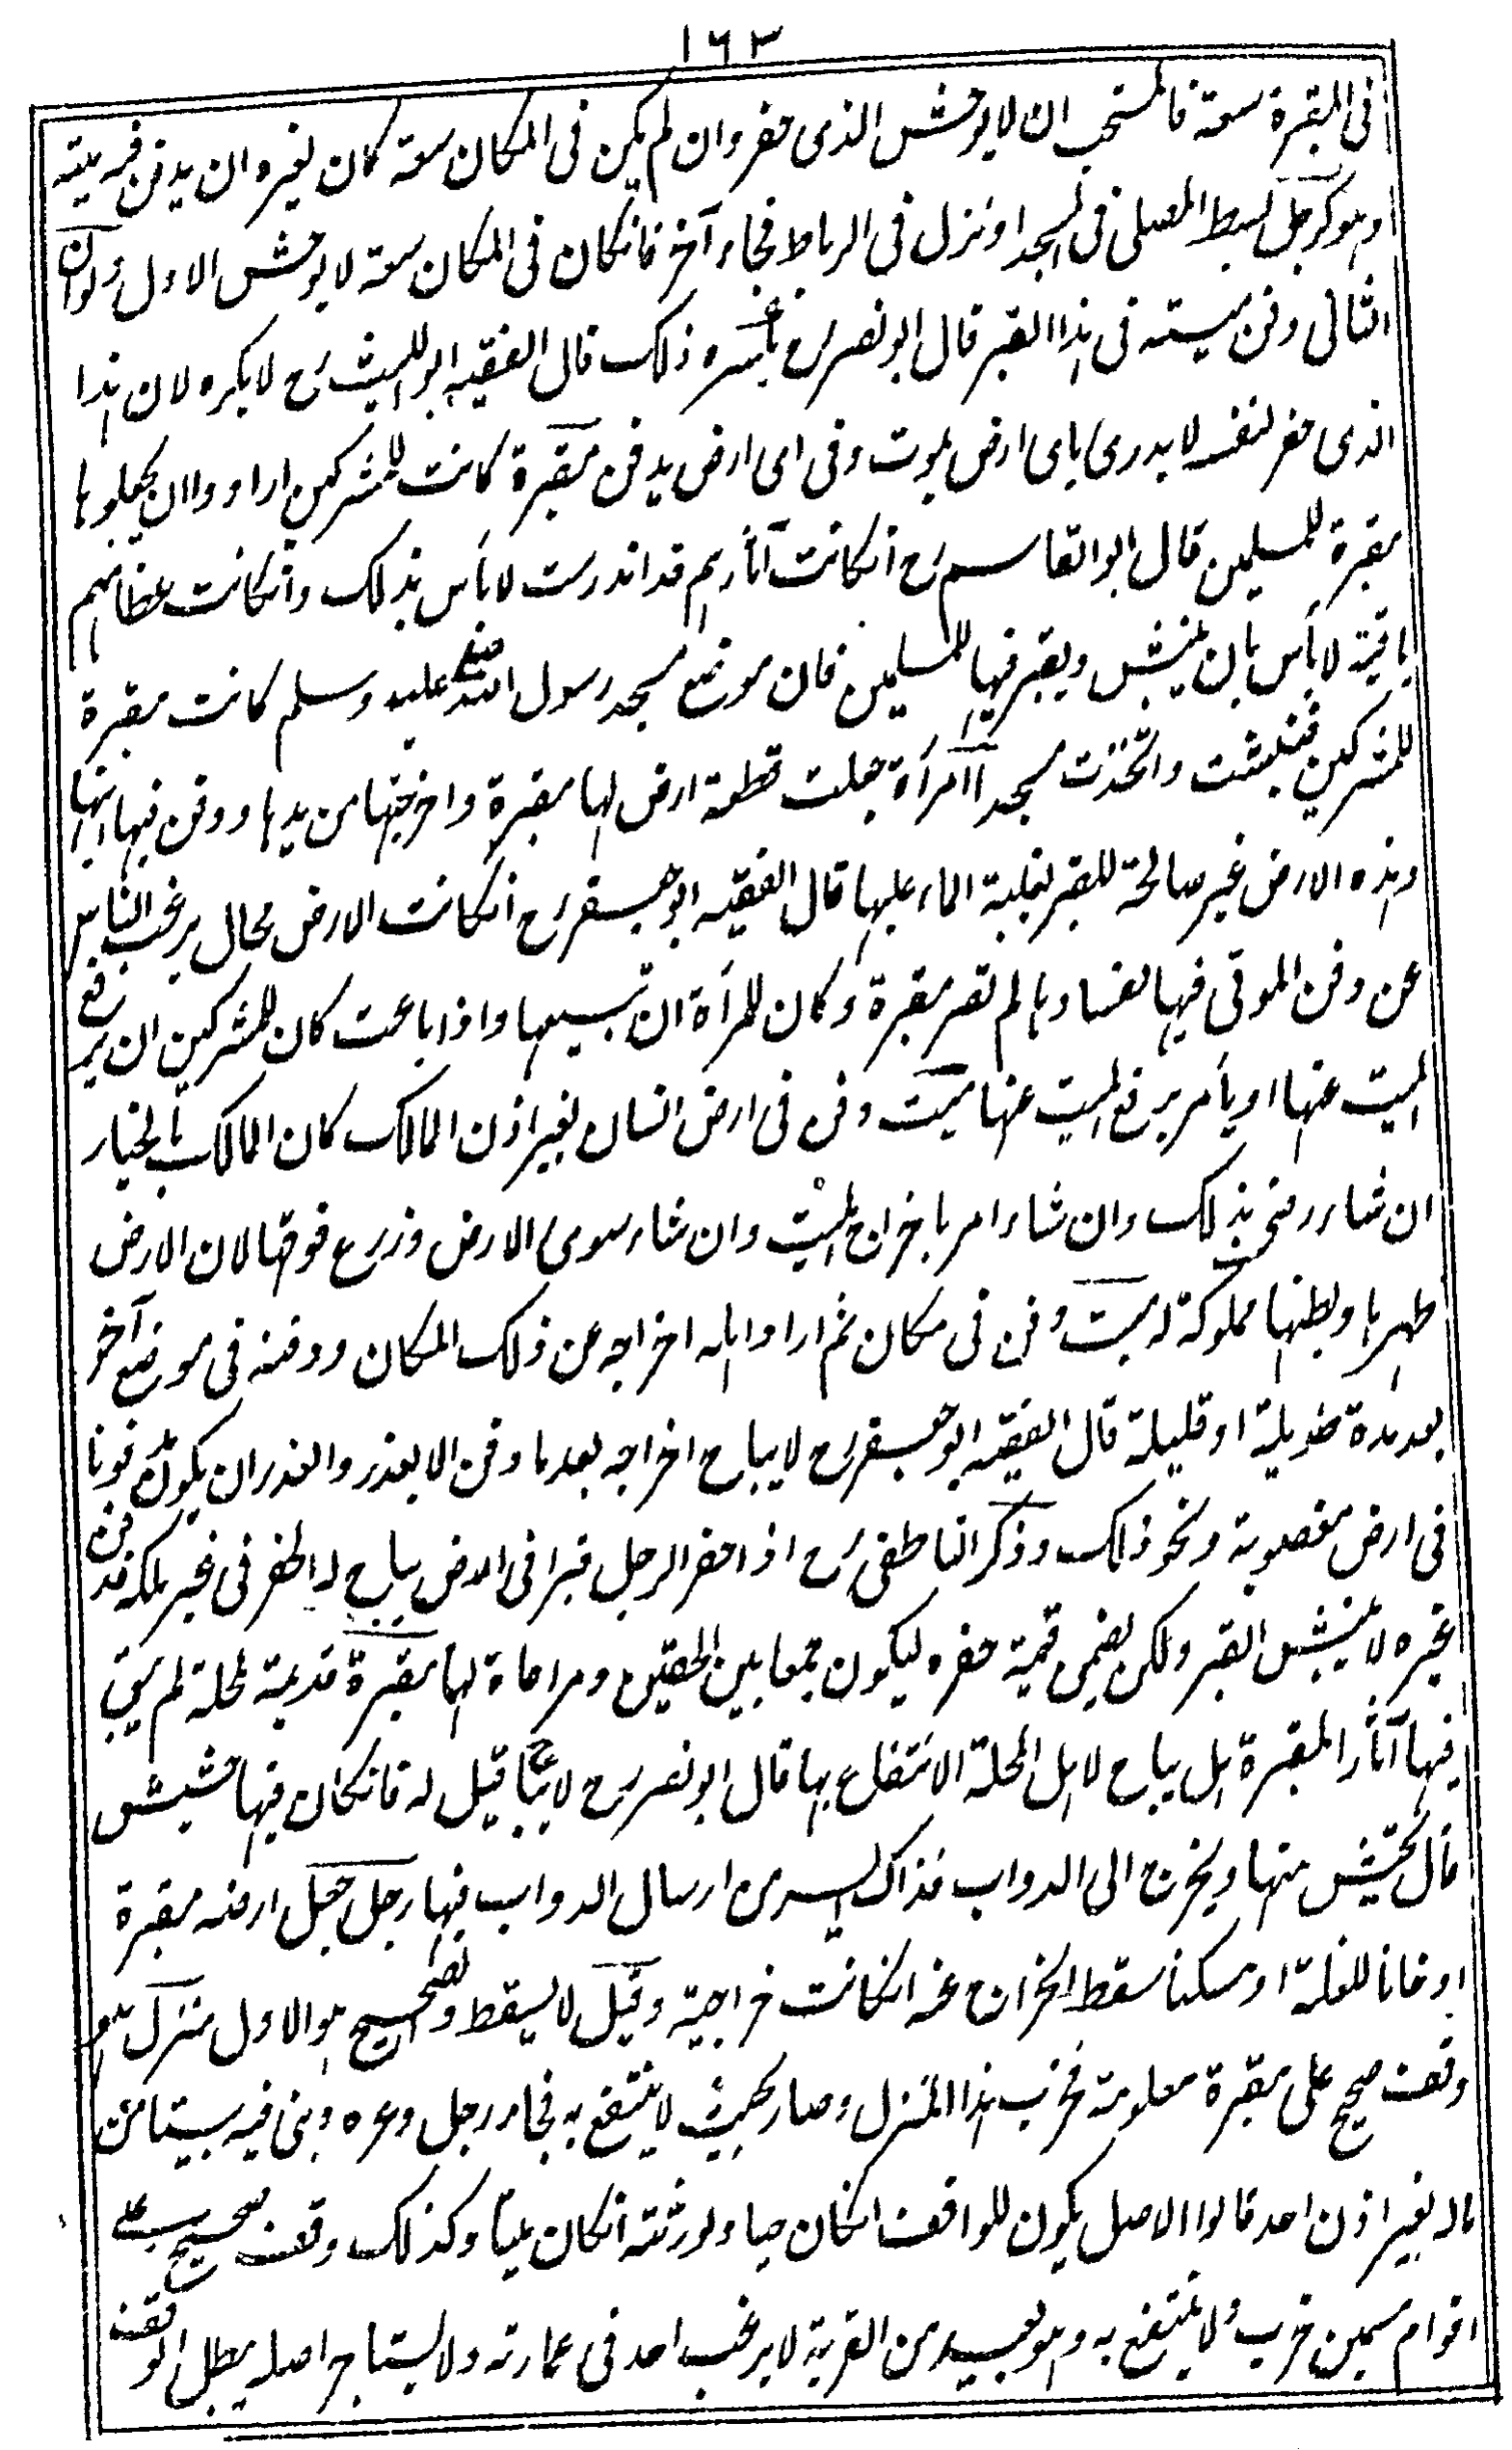 ١٦٣
فی المقبرة سعة فالمستحب ان لا یوحش الذی حفر وان لم یکن فی المکان سعة کان لغیره ان یدفن فیه میته
وهو کرجل بسط المصلی فی المسجد او نزل فی الرباط فجاء آخر فانکان فی المکان سعة لا یوحش الاول ولو ان
الثانی دفن میته فی هذا القبر قال ابو نصر رح یکره ذلک قال الفقیه ابو اللیث رح لا یکره لان هذا
الذی حفر لنفسه لا یدری بای ارض یموت وفی ای ارض یدفن مقبرة کانت للمشرکین ارادوا ان یجعلوها
مقبرة للمسلمین قال ابو القاسم رح انکانت آثارهم قد اندرست لا بأس بذلک وانکانت عظامهم
باقیة لا بأس بان ینبش ویقبر فیها للمسلمین فان موضع مسجد رسول الله صلی علیه وسلم کانت مقبرة
للمشرکین فنبشت واتخذت مسجدا امرأة جعلت قطعة ارض لها مقبرة واخرجتها من یدها ودفن فیها ابنها
وهذه الارض غیر صالحة للقبر لغلبة الماء علیها قال الفقیه ابو جعفر رح انکانت الارض بحال یرغب الناس
عن دفن الموتی فیها لفسادها لم تصر مقبرة وکان للمرأة ان تبیعها واذا باعت کان للمشترکین ان یرفع
المیت عنها او یأمر برفع المیت عنها میت دفن فی ارض انسان بغیر اذن المالک کان المالک بالخیار
ان شاء رضی بذلک وان شاء امر باخراج المیت وان شاء سوی الارض وزرع فوقها لان الارض
ظهرها وبطنها مملوکة له میت دفن فی مکان ثم اراد اهله اخراجه عن ذلک المکان ودفنه فی موضع آخر
بعد مدة طویلة او قلیلة قال الفقیه ابو جعفر رح لا یباح اخراجه بعد ما دفن الا بعذر والعذر ان یکون مدفونا
فی ارض مغصوبة ونحو ذلک وذکر الناطفی رح اذا حفر الرجل قبرا فی ارض یباح له الحفر فی غیر ملکه فدفن
غیره لا ینبش القبر ولکن یضمن قیمة حفره لیکون جمعا بین الحقین ومراعاة لهما مقبرة قدیمة لمحلة لم یبق
فیها آثار المقبرة هل یباح لاهل المحلة الانتفاع بها قال ابو نصر رح لا یباح قیل له فانکان فیها حشیش
قال یحتش منها ویخرج الی الدواب فذاک ایسر من ارسال الدواب فیها رجل جعل ارضه مقبرة
او خانا للغلة او مسکنا سقط الخراج عنه انکانت خراجیة وقیل لا یسقط والصحیح هو الاول منزل هو
وقف صحیح علی مقبرة معلومة فخرب هذا المنزل وصار بحیث لا ینتفع به فجاء رجل وعمره وبنی فیه بیتا من
ماله بغیر اذن احد قالوا الاصل یکون للواقف انکان حیا ولورثته انکان میتا وکذلک وقف صحیح علی
اقوام مسمین خرب ولا ینتفع به وهو بعید من القریة لا یرغب احد فی عمارته ولا یستاجر اصله یبطل الوقف